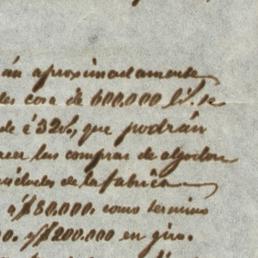 án aproximadamente
cosa de 600.000 lb. se
de á 32 c., que podrán
las compras de algodon
de la fabrica
a $80.000. como termino
$200.000 en giro.